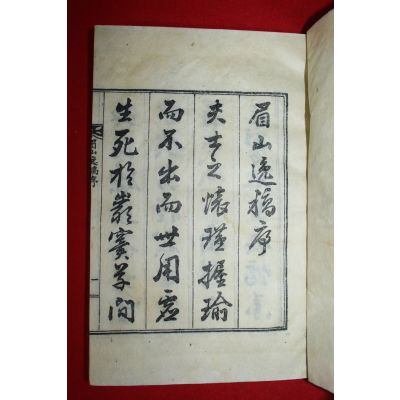 眉山逸稿序
夫士之懷瑾握瑜
而不出而世用之
生死於巖竇草間
眉山逸稿序
一